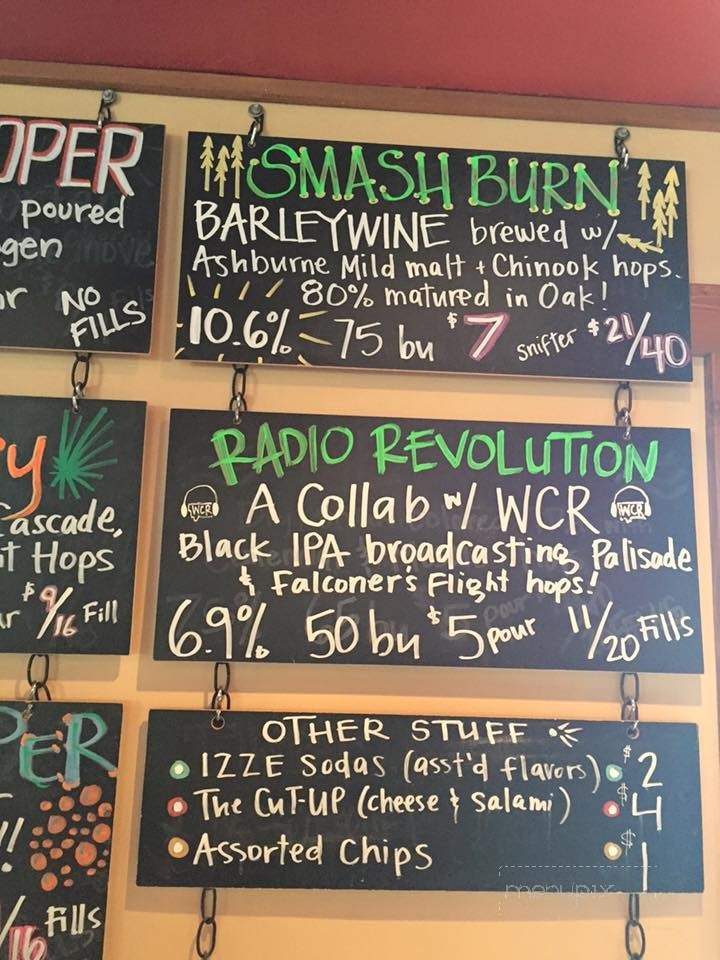 OPER
poured
gen
r NO
FILLS
SMASH BURN
BARLEYWINE brewed w/
Ashburne Mild malt + Chinook hops.
80% matured in Oak!
10.6% 75 bu $7 snifter $21/40
y
Cascade,
t Hops
r $9/16 Fill
RADIO REVOLUTION
WCR A Collab w/ WCR WCR
Black IPA broadcasting Palisade
& Falconer's Flight hops!
6.9% 50 bu $5 pour 11/20 Fills
PER
!!
/16 Fills
OTHER STUFF
IZZE Sodas (asst'd flavors) $2
The CUT-UP (cheese & Salami) $4
Assorted Chips $1
menupix